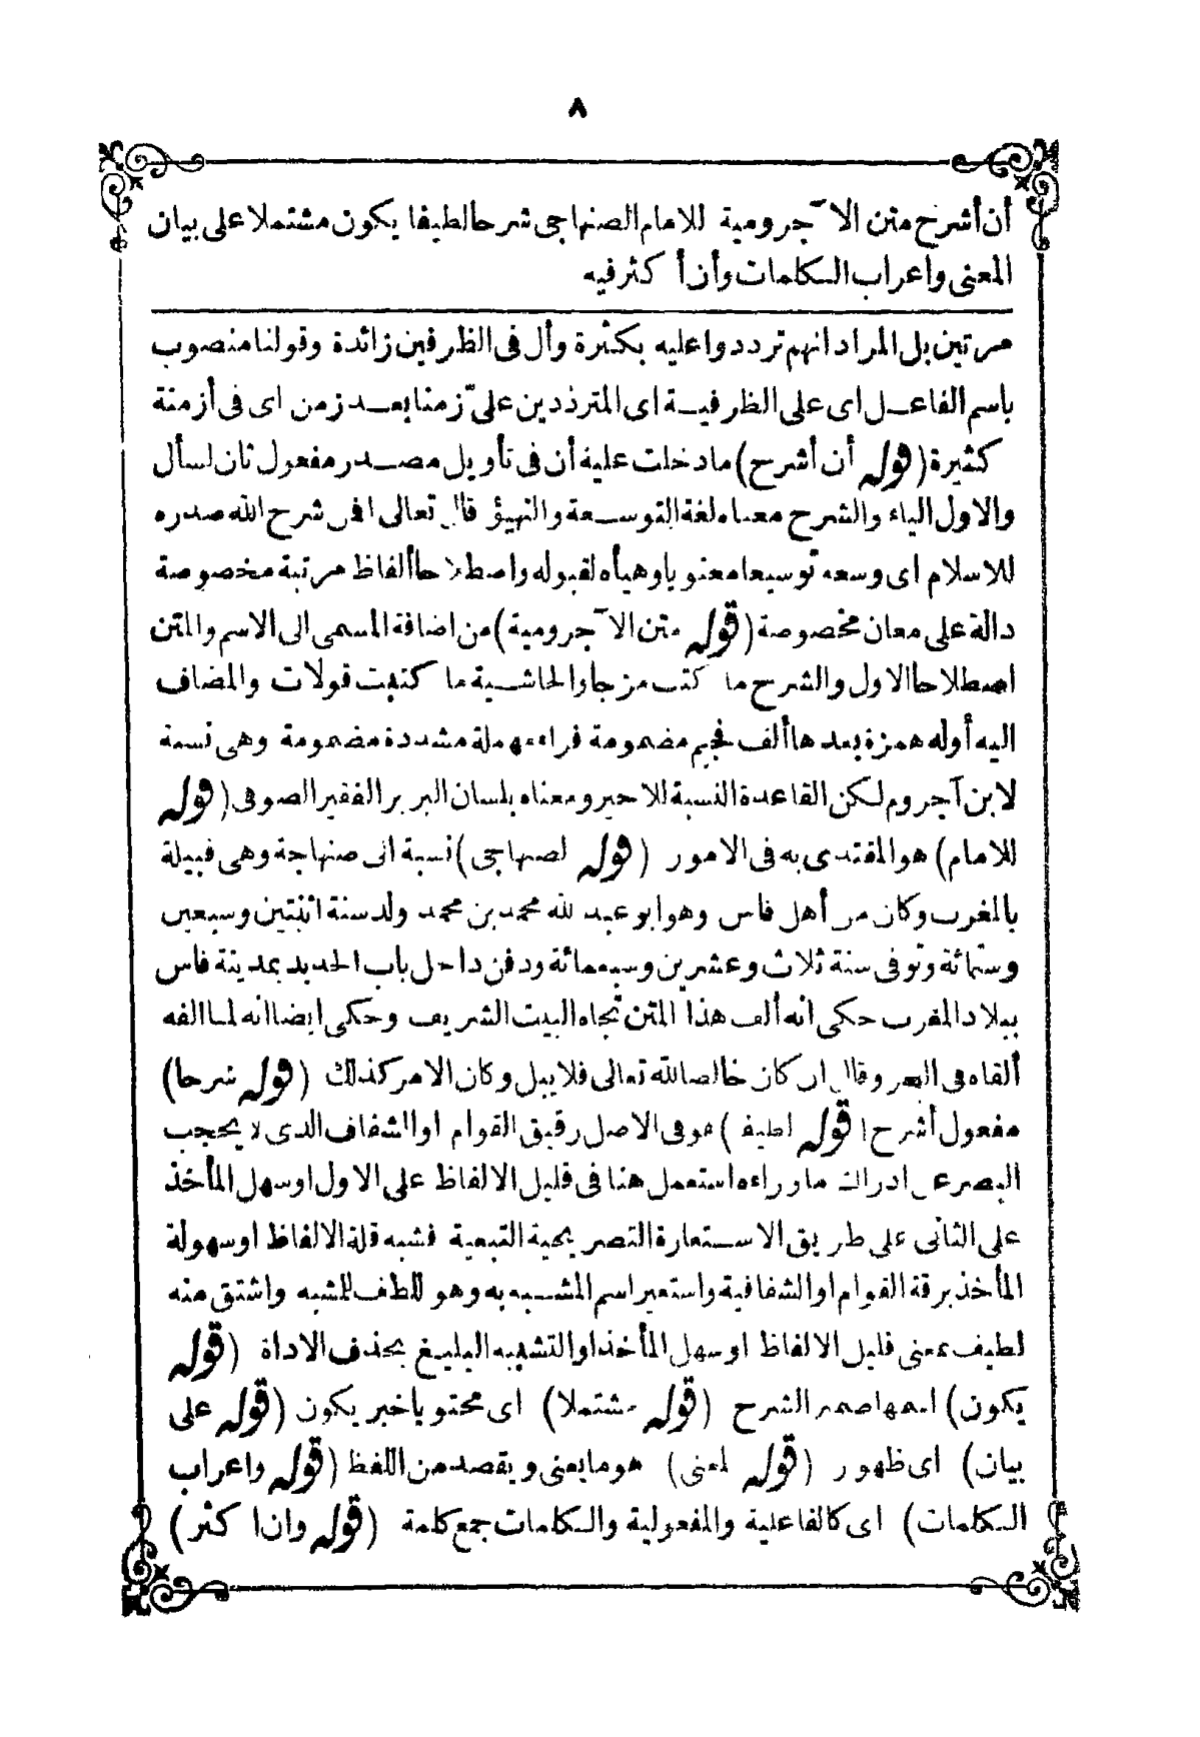 ٨
أن أشرح متن الآجرومية للامام الصنهاجى شرحا لطيفا يكون مشتملا على بيان
المعنى واعراب الكلمات وأن أكثر فيه
مرتين بل المراد انهم ترددوا عليه بكثرة وأل فى الظرفين زائدة وقولنا منصوب
باسم الفاعل اى على الظرفية اى المترددين علىّ زمنا بعد زمن اى فى أزمنة
كثيرة (قوله أن أشرح) ما دخلت عليه أن فى تأويل مصدر مفعول ثان لسأل
والاول الياء والشرح معناه لغة التوسعة والتهيؤ قال تعالى افمن شرح الله صدره
للاسلام اى وسعه توسيعا معنويا وهيأه لقبوله واصطلاحا ألفاظ مرتبة مخصوصة
دالة على معان مخصوصة (قوله متن الآجرومية) من اضافة المسمى الى الاسم والمتن
اصطلاحا الاول والشرح ما كتب مزجا والحاشية ما كتبت قولات والمضاف
اليه أوله همزة بعدها ألف فجيم مضمومة فراء مهملة مشددة مضمومة وهى نسبة
لابن آجروم لكن القاعدة النسبة للاخير ومعناه بلسان البربر الفقير الصوفى (قوله
للامام) هو المقتدى به فى الامور (قوله الصنهاجى) نسبة الى صنهاجة وهى قبيلة
بالمغرب وكان من أهل فاس وهو ابو عبد الله محمد بن محمد ولد سنة اثنتين وسبعين
وستمائة وتوفى سنة ثلاث وعشرين وسبعمائة ودفن داخل باب الحديد بمدينة فاس
ببلاد المغرب حكى انه ألف هذا المتن تجاه البيت الشريف وحكى ايضا انه لما الفه
ألقاه فى البحر وقال ان كان خالصا لله تعالى فلا يبل وكان الامر كذلك (قوله شرحا)
مفعول أشرح (قوله لطيفا) هو فى الاصل رقيق القوام او الشفاف الذى لا يحجب
البصر عن ادراك ما وراءه استعمل هنا فى قليل الالفاظ على الاول او سهل المأخذ
على الثانى على طريق الاستعارة التصريحية التبعية فشبه قلة الالفاظ او سهولة
المأخذ برقة القوام او الشفافية واستعير اسم المشبه به وهو اللطف للمشبه واشتق منه
لطيف بمعنى قليل الالفاظ او سهل المأخذ او التشبيه البليغ بحذف الاداة (قوله
يكون) اسمها ضمير الشرح (قوله مشتملا) اى محتويا خبر يكون (قوله على
بيان) اى ظهور (قوله المعنى) هو ما يعنى ويقصد من اللفظ (قوله واعراب
الكلمات) اى كالفاعلية والمفعولية والكلمات جمع كلمة (قوله وان اكثر)